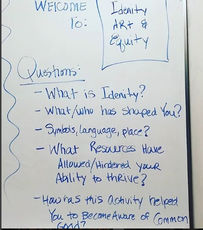 Welcome
To:
Idenity
Art &
Equity
Questions:
- What is Idenity?
- What/who has shaped You?
- Symbols, language, place?
- What Resources Have
Allowed/Hindered your
Ability to thrive?
- How has this activity helped
You to Become Aware of Common
Good?